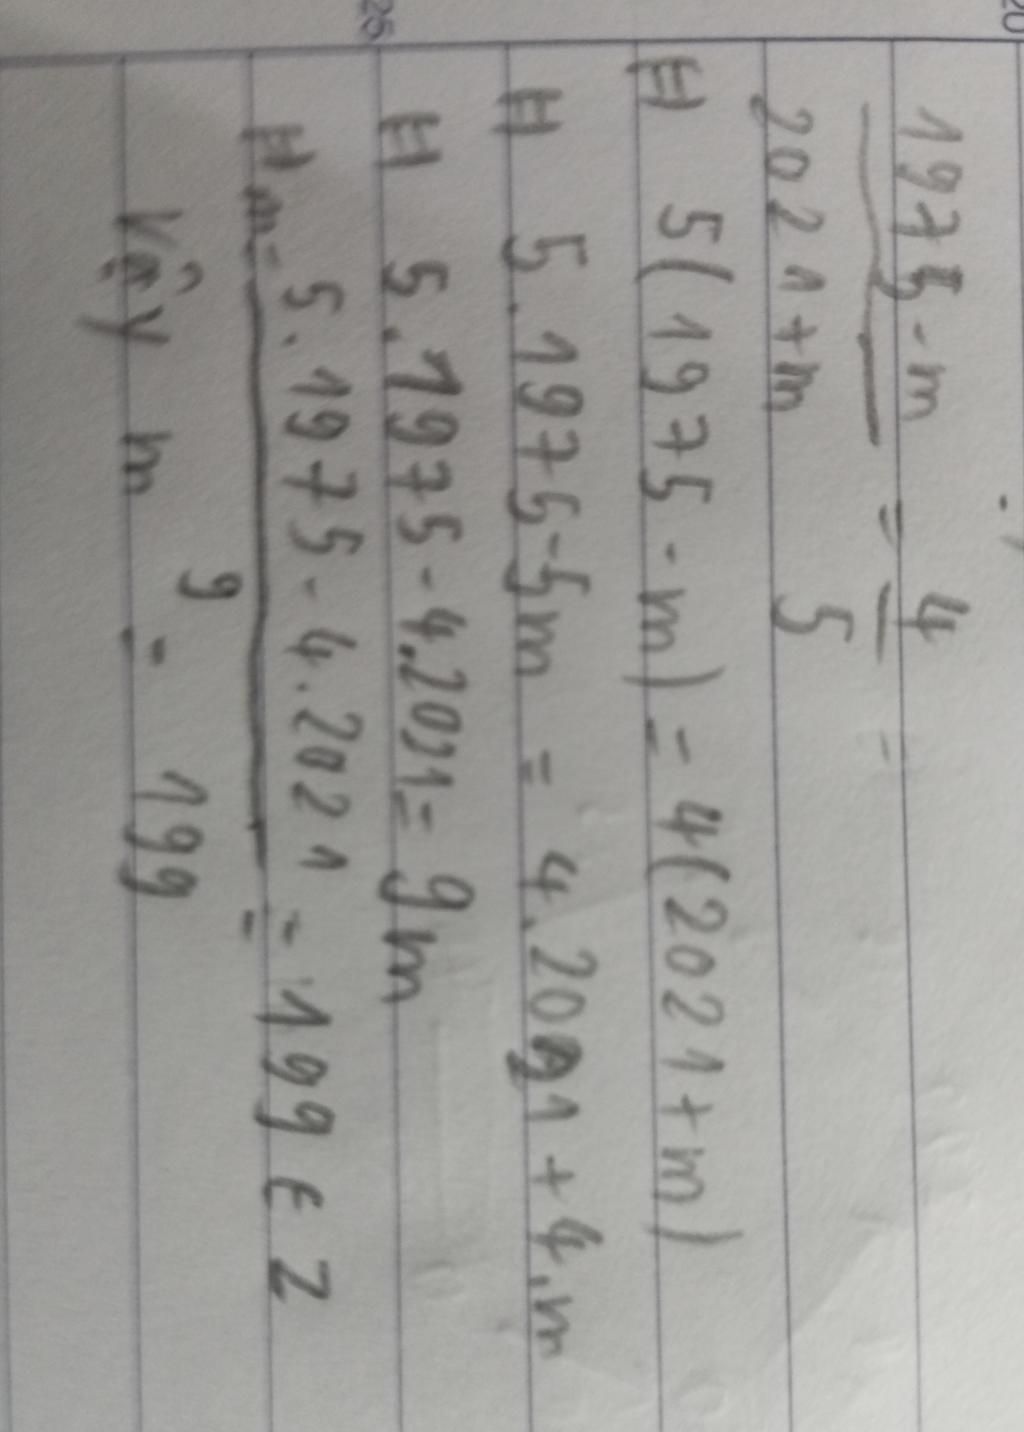 1975-m / 2021+m = 4/5 =
⇔ 5(1975-m) = 4(2021+m)
⇔ 5.1975-5m = 4.2021+4.m
⇔ 5.1975-4.2021= 9m
⇔ m= 5.1975-4.2021 / 9 = 199 ∈ Z
Vậy m = 199
20
25